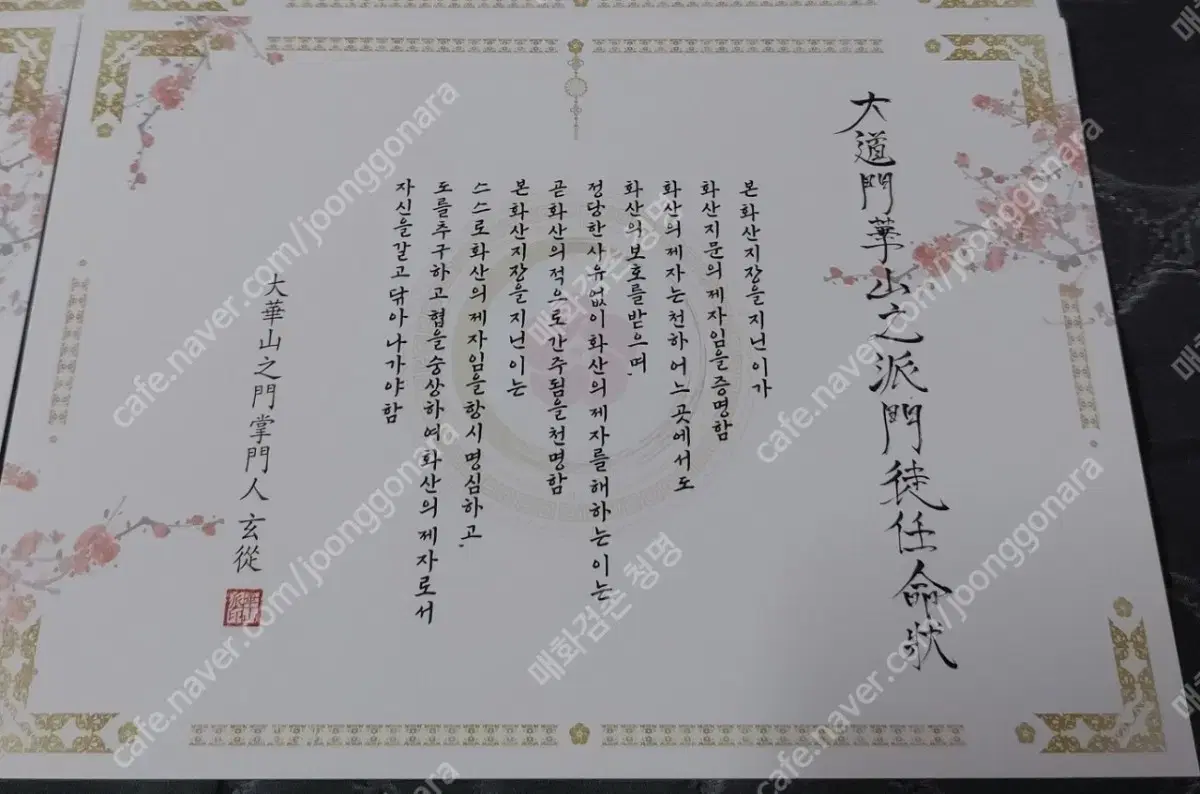 大道門華山之派門徒任命狀
본화산지장을지닌이가
화산지문의제자임을증명함
화산의제자는천하어느곳에서도
화산의보호를받으며,
정당한사유없이화산의제자를해하는이는
곧화산의적으로간주됨을천명함
본화산지장을지닌이는
스스로화산의제자임을항시명심하고,
도를추구하고협을숭상하여화산의제자로서
자신을갈고닦아나가야함
大華山之門掌門人玄從
cafe.naver.com/joonggonara
매화검존 청명